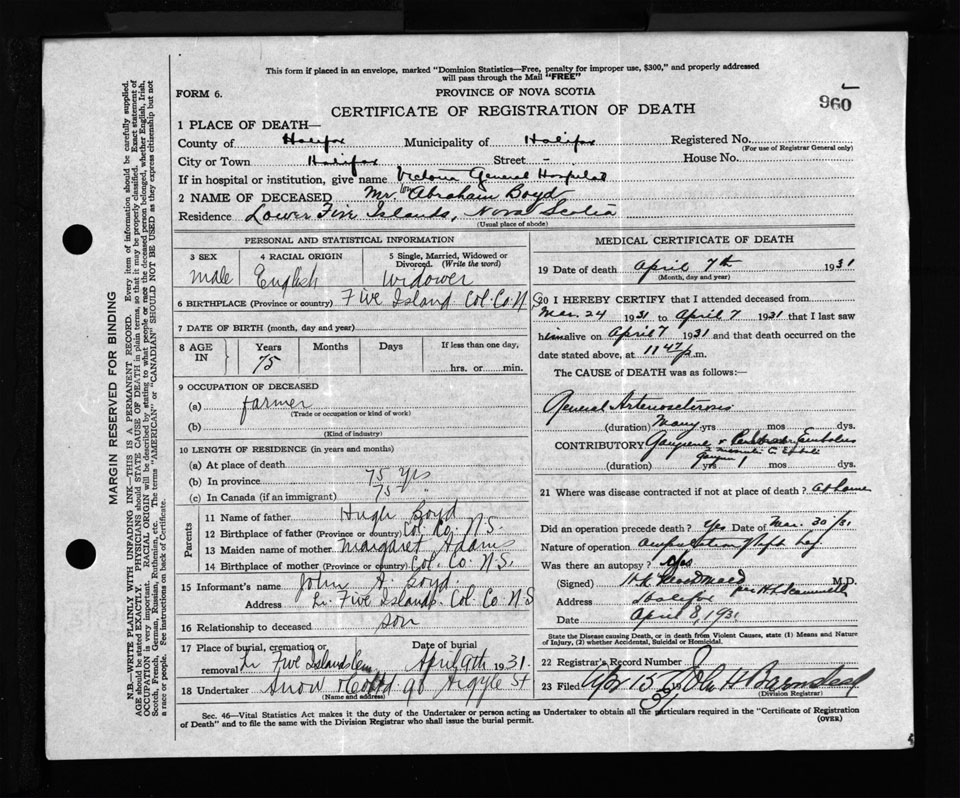 This form if placed in an envelope, marked "Dominion Statistics—Free, penalty for improper use, $300," and properly addressed
will pass through the Mail "FREE"
FORM 6.
PROVINCE OF NOVA SCOTIA
960
CERTIFICATE OF REGISTRATION OF DEATH
1 PLACE OF DEATH—
County of Halifax Municipality of Halifax Registered No.
(For use of Registrar General only)
City or Town Halifax Street - House No.
If in hospital or institution, give name Victoria General Hospital
2 NAME OF DECEASED Mr. Abraham Boyd
Residence Lower Five Islands, Nova Scotia
(Usual place of abode)
PERSONAL AND STATISTICAL INFORMATION
3 SEX 4 RACIAL ORIGIN 5 Single, Married, Widowed or
Divorced. (Write the word)
male English Widower
6 BIRTHPLACE (Province or country) Five Island Col. Co. N.S.
7 DATE OF BIRTH (month, day and year)
8 AGE IN Years Months Days If less than one day,
75 hrs. or min.
9 OCCUPATION OF DECEASED
(a) farmer
(Trade or occupation or kind of work)
(b)
(Kind of industry)
10 LENGTH OF RESIDENCE (in years and months)
(a) At place of death
(b) In province 75 yrs
(c) In Canada (if an immigrant) 75 "
Parents
11 Name of father Hugh Boyd
12 Birthplace of father (Province or country) Col. Co. N.S.
13 Maiden name of mother Margaret Adams
14 Birthplace of mother (Province or country) Col. Co. N.S.
15 Informant's name John A. Boyd
Address Lr. Five Islands Col. Co. N.S
16 Relationship to deceased son
17 Place of burial, cremation or Date of burial
removal Lr Five Islands Cem April 9th 1931
18 Undertaker Snow & Co Ltd 90 Argyle St
(Name and address)
MEDICAL CERTIFICATE OF DEATH
19 Date of death April 7th 1931
(Month, day and year)
20 I HEREBY CERTIFY that I attended deceased from
Mar. 24 1931 to April 7 1931 that I last saw
him alive on April 7 1931 and that death occurred on the
date stated above, at 11 47 p.m.
The CAUSE of DEATH was as follows:—
General Arteriosclerosis
(duration) Many yrs mos dys.
CONTRIBUTORY Gangrene Embolus
(duration) yrs 1 mos dys.
21 Where was disease contracted if not at place of death? at home
Did an operation precede death? Yes Date of Mar. 30/31
Nature of operation amputation of left leg
Was there an autopsy?
(Signed) M.D.
Address Halifax
Date April 8, 1931
State the Disease causing Death, or in death from Violent Causes, state (1) Means and Nature
of Injury, (2) whether Accidental, Suicidal or Homicidal.
22 Registrar's Record Number
23 Filed Apr 15 31 John H Barnstead
(Division Registrar)
Sec. 46—Vital Statistics Act makes it the duty of the Undertaker or person acting as Undertaker to obtain all the particulars required in the "Certificate of Registration
of Death" and to file the same with the Division Registrar who shall issue the burial permit.
(OVER)
MARGIN RESERVED FOR BINDING
N.B.—WRITE PLAINLY WITH UNFADING INK—THIS IS A PERMANENT RECORD. Every item of information should be carefully supplied.
AGE should be stated EXACTLY. PHYSICIANS should STATE CAUSE OF DEATH in plain terms, so that it may be properly classified. Exact statement of
OCCUPATION is very important. RACIAL ORIGIN will be described by stating to what people or race the deceased person belonged, whether English, Irish,
Scotch, French, German, Russian, Ruthenian, etc. The terms "AMERICAN" or "CANADIAN" SHOULD NOT BE USED as they express citizenship but not
a race or people. See instructions on back of Certificate.